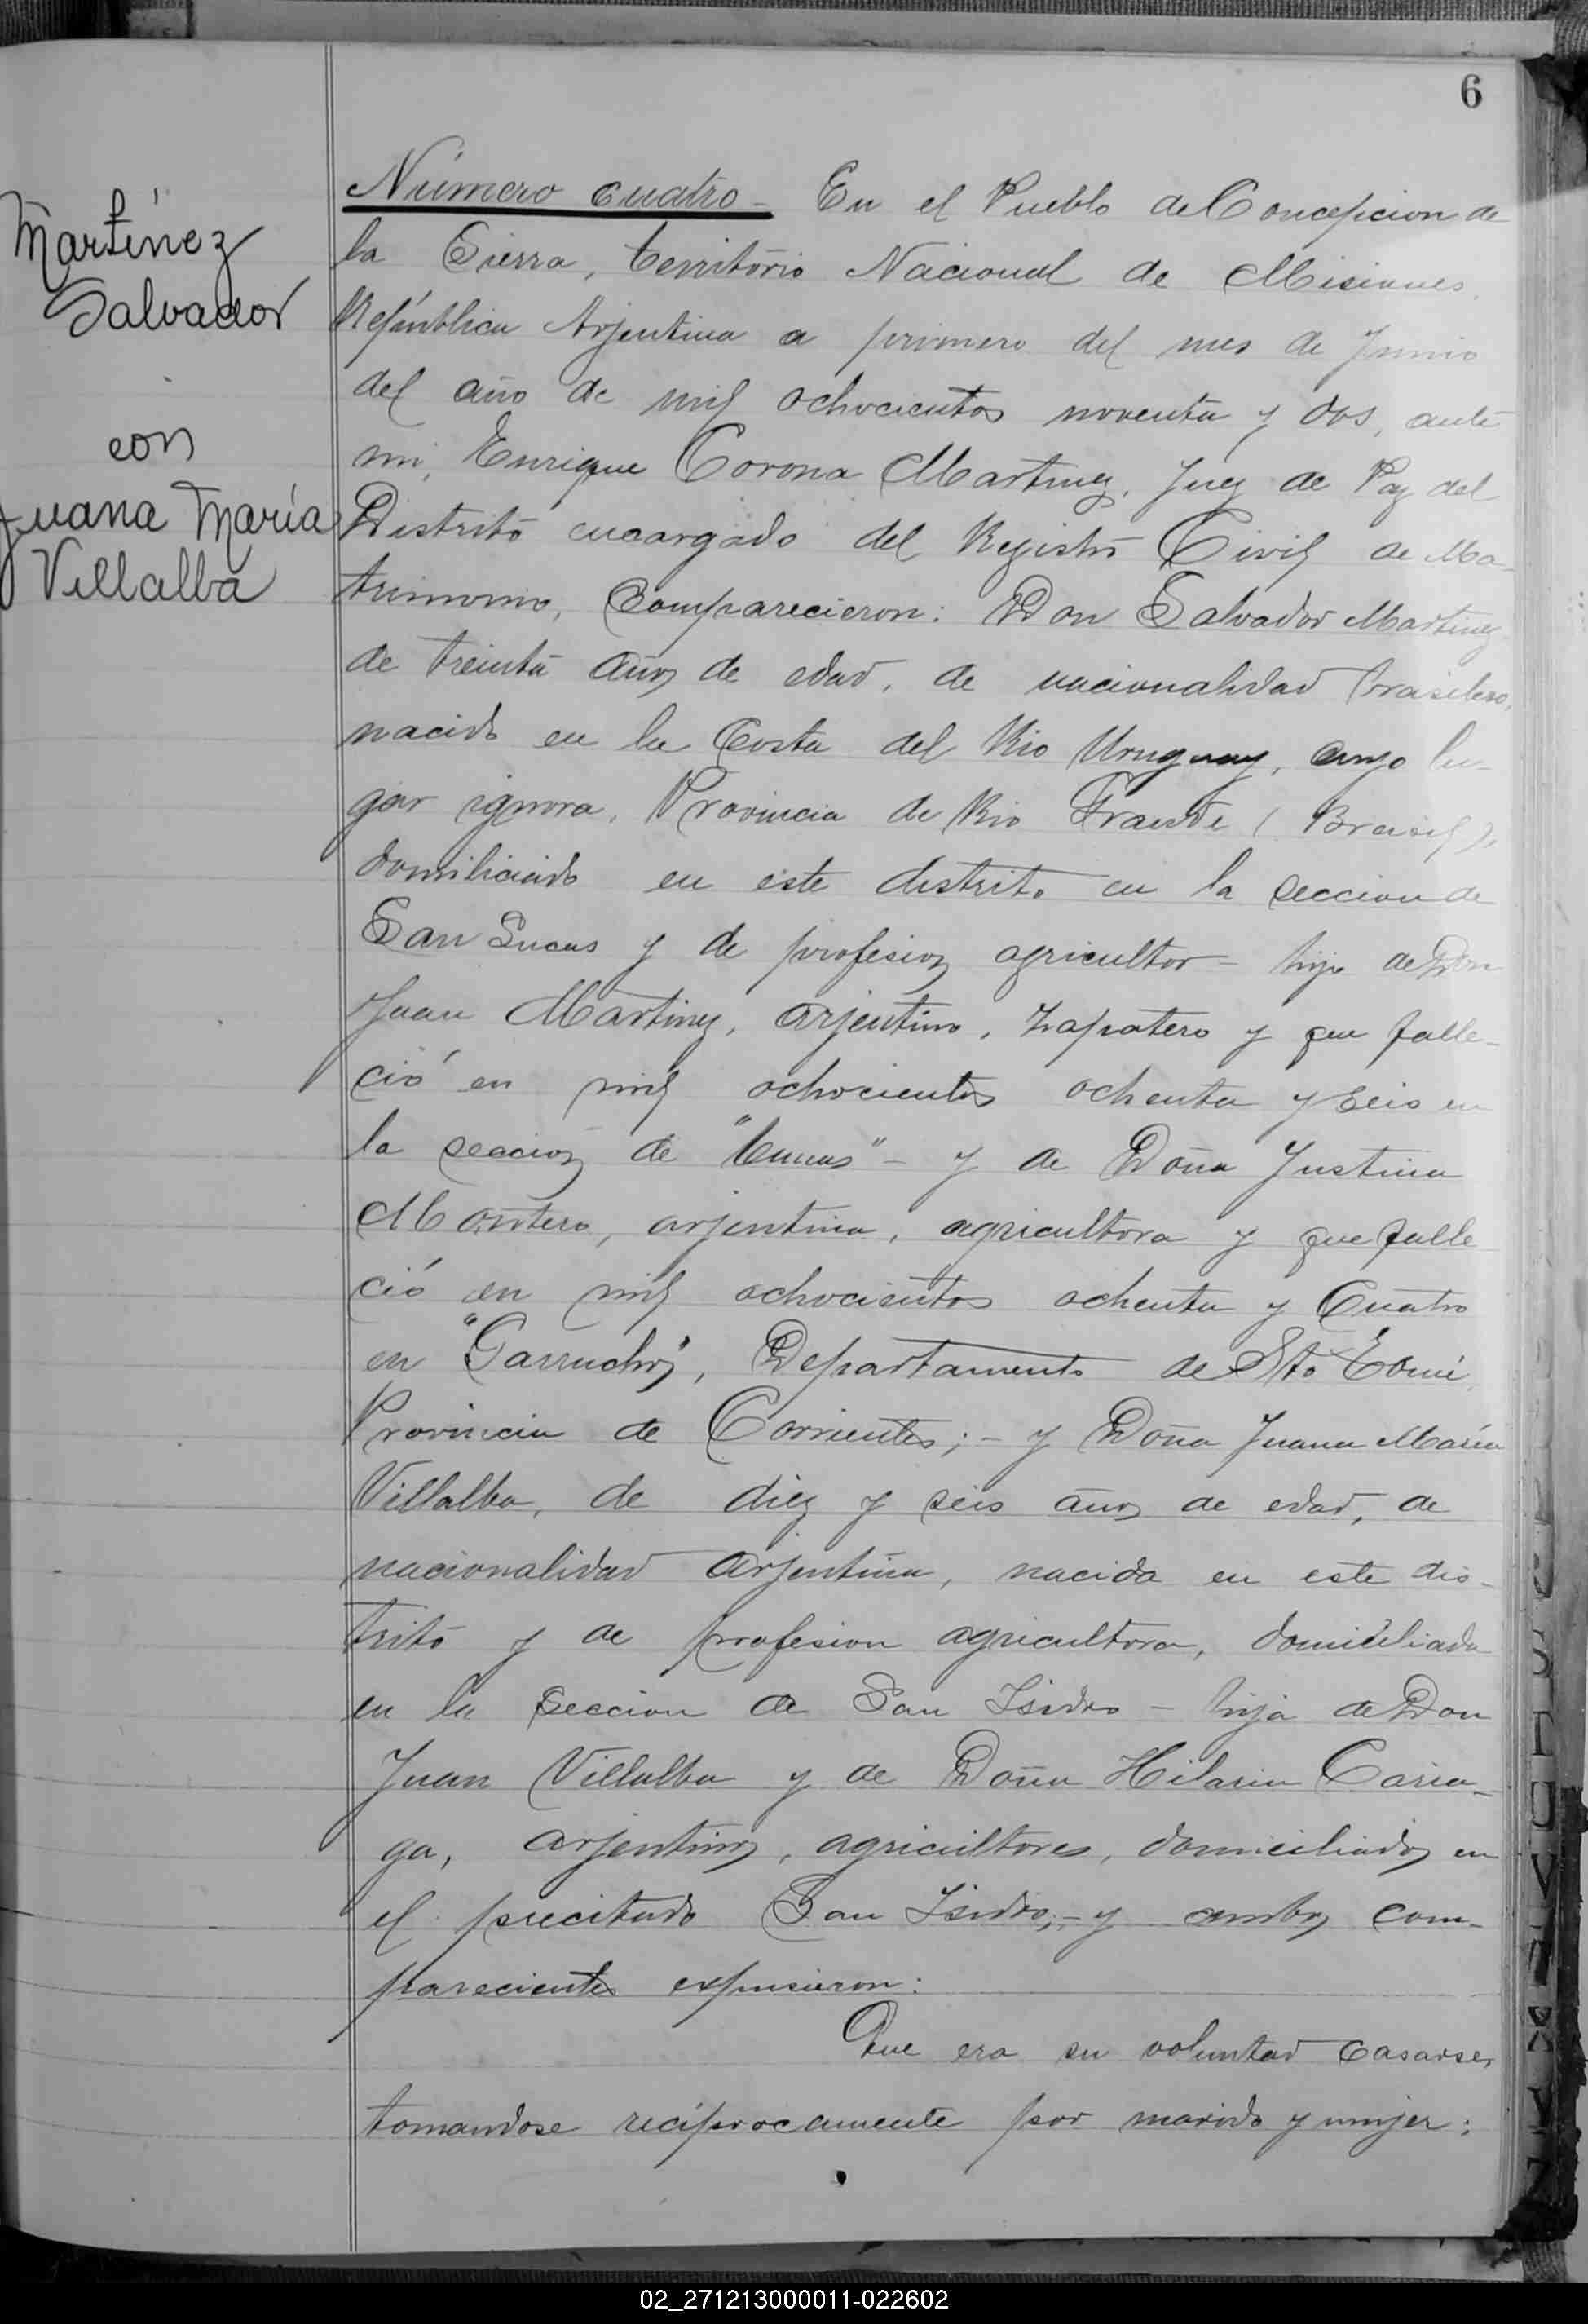 6
Martínez
Salvador
con
Juana María
Villalba
Número cuatro - En el Pueblo de Concepcion de
la Sierra, territorio Nacional de Misiones
República Arjentina a primero del mes de Junio
del año de mil ochocientos noventa y dos, ante
mi, Enrique Corona Martinez, Juez de Paz del
Distrito encargado del Registro Civil de Ma-
trimonio, Comparecieron: Don Salvador Martinez
de treinta años de edad, de nacionalidad brasilero,
nacido en la Costa del Rio Uruguay, cuyo lu-
gar ignora, Provincia de Rio Grande (Brasil),
domiciliado en este distrito en la seccion de
San Lucas y de profesion agricultor - hijo de Don
Juan Martinez, arjentino, zapatero y que falle-
ció en mil ochocientos ochenta y seis en
la seccion de " " - y de Doña Justina
Montero, arjentina, agricultora y que falle
ció en mil ochocientos ochenta y Cuatro
en "Garruchos", Departamento de Sto Tomé
Provincia de Corrientes; - y Doña Juana María
Villalba, de diez y seis años de edad, de
nacionalidad arjentina, nacida en este dis-
trito y de profesion agricultora, domiciliada
en la seccion de San Isidro - hija de Don
Juan Villalba y de Doña Hilaria Caria-
ga, arjentinos, agricultores, domiciliados en
el precitado San Isidro; - y ambos com-
parecientes expusieron:
Que era su voluntad casarse,
tomandose recíprocamente por marido y mujer;
02_271213000011-022602